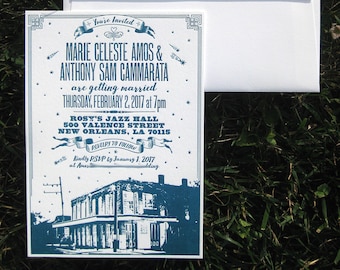 You're Invited
MARIE CELESTE AMOS &
ANTHONY SAM CAMMARATA
are getting married
THURSDAY, FEBRUARY 2, 2017 at 7pm
ROSY'S JAZZ HALL
500 VALENCE STREET
NEW ORLEANS, LA 70115
REVELRY TO FOLLOW
Kindly RSVP by January 1, 2017
at